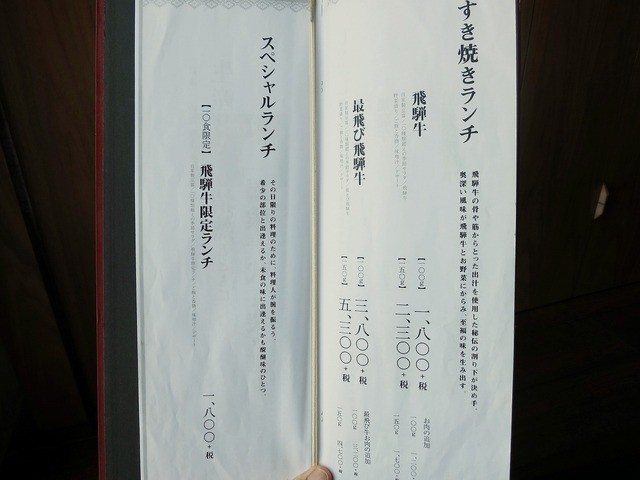 すき焼きランチ
飛騨牛の骨や筋からとった出汁を使用した秘伝の割り下が決め手。
奥深い風味が飛騨牛とお野菜にからみ、至福の味を生み出す。
飛騨牛
【一〇〇g】 一、八〇〇+税
【一五〇g】 二、三〇〇+税
お肉の追加
一〇〇g 一、二〇〇
一五〇g 一、七〇〇+税
最飛び飛騨牛
【一〇〇g】 三、八〇〇+税
【一五〇g】 五、三〇〇+税
最飛び牛お肉の追加
一〇〇g 三、二〇〇+税
一五〇g 四、七〇〇+税
スペシャルランチ
その日限りの料理のために、料理人が腕を振るう。
希少の部位と出逢えるか、未食の味に出逢えるかも醍醐味のひとつ。
【二〇食限定】 飛騨牛限定ランチ
一、八〇〇+税